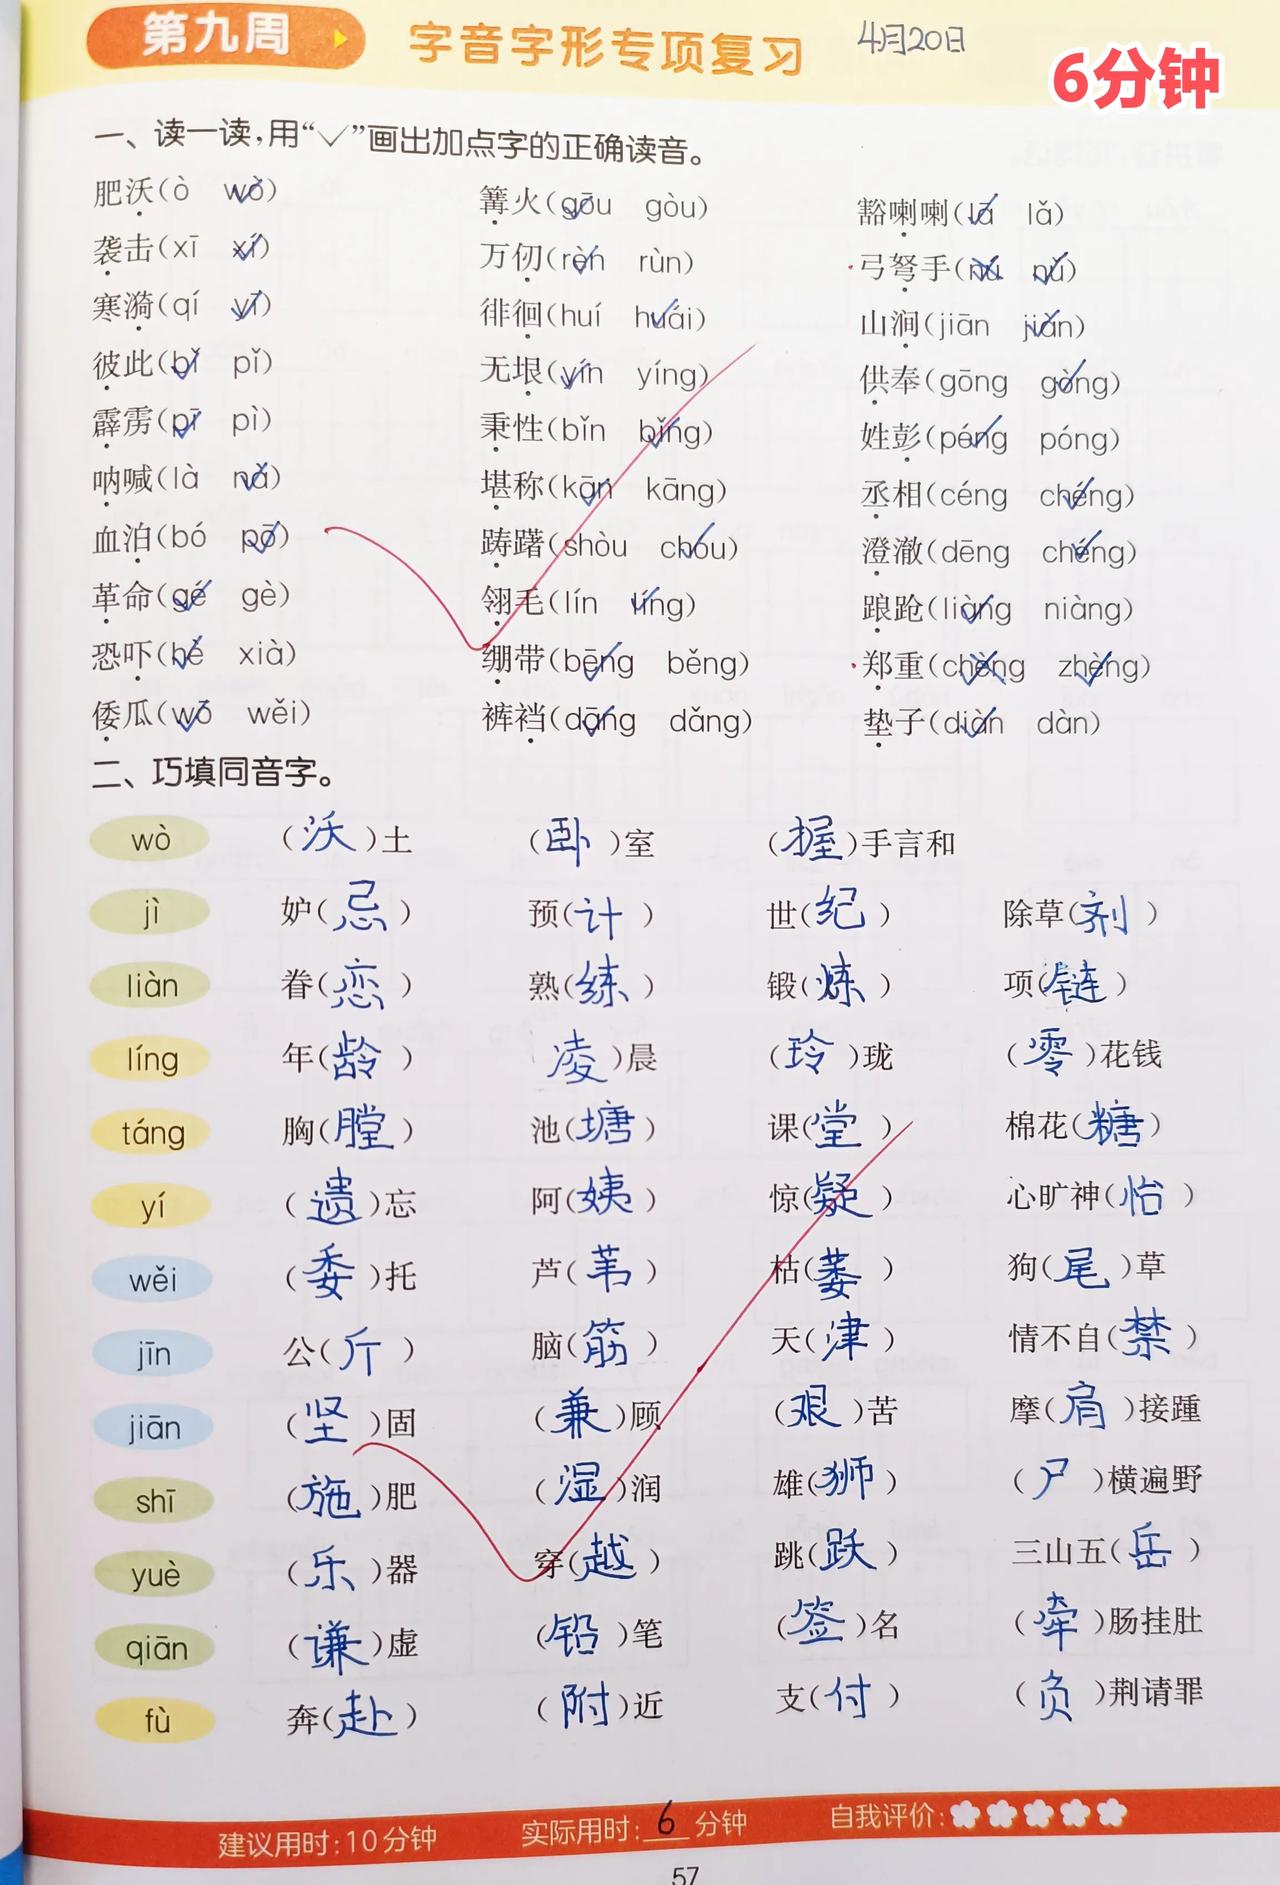 第九周 字音字形专项复习 4月20日
6分钟
一、读一读，用“√”画出加点字的正确读音。
肥沃(ò wò) 篝火(gōu gòu) 豁喇喇(lā lǎ)
袭击(xī xí) 万仞(rèn rùn) 弓弩手(nú nǔ)
寒漪(qí yī) 徘徊(huí huái) 山涧(jiān jiàn)
彼此(bǐ pǐ) 无垠(yín yíng) 供奉(gōng gòng)
霹雳(pī pì) 秉性(bǐn bǐng) 姓彭(péng póng)
呐喊(là nà) 堪称(kān kāng) 丞相(céng chéng)
血泊(bó pō) 踌躇(shòu chóu) 澄澈(dēng chéng)
革命(gé gè) 翎毛(lín líng) 踉跄(liàng niàng)
恐吓(hè xià) 绷带(bēng běng) 郑重(chèng zhèng)
倭瓜(wō wěi) 裤裆(dāng dǎng) 垫子(diàn dàn)
二、巧填同音字。
wò (沃)土 (卧)室 (握)手言和
jì 妒(忌) 预(计) 世(纪) 除草(剂)
liàn 眷(恋) 熟(练) 锻(炼) 项(链)
líng 年(龄) 凌)晨 (玲)珑 (零)花钱
táng 胸(膛) 池(塘) 课(堂) 棉花(糖)
yí (遗)忘 阿(姨) 惊(疑) 心旷神(怡)
wěi (委)托 芦(苇) 枯(萎) 狗(尾)草
jīn 公(斤) 脑(筋) 天(津) 情不自(禁)
jiān (坚)固 (兼)顾 (艰)苦 摩(肩)接踵
shī (施)肥 (湿)润 雄(狮) (尸)横遍野
yuè (乐)器 穿(越) 跳(跃) 三山五(岳)
qiān (谦)虚 (铅)笔 (签)名 (牵)肠挂肚
fù 奔(赴) (附)近 支(付) (负)荆请罪
建议用时:10分钟 实际用时:6分钟 自我评价:
57